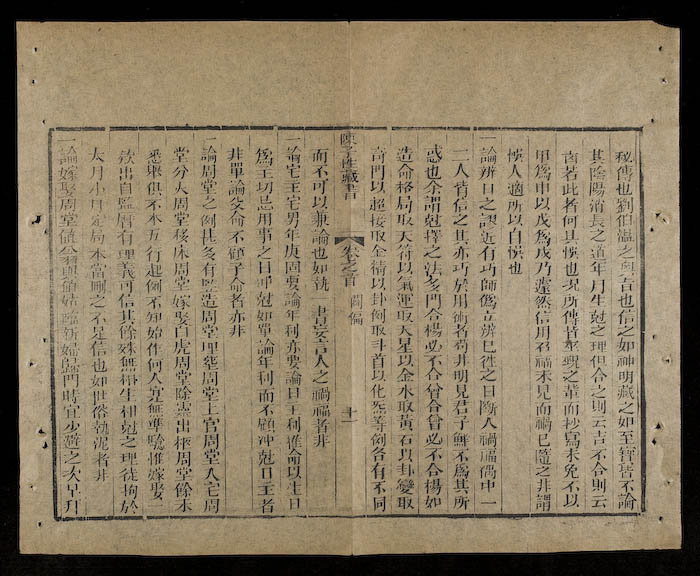 秘傳也劉伯温之奧旨也信之如神明藏之如至寶皆不論
其陰陽消長之道年月生尅之理但合之則云吉不合則云
凶若此者何其悞也況所傳皆率瞍之輩而抄寫未免不以
甲為申以戊為戌乃遽然信用召福未見而禍已隨之非謂
悞人適所以自悞也
一論辨日之謬近有巧師偽立辨已徃之日斷人禍福偶中一
二人皆信之其亦巧於用術者苟非明見君子鮮不為其所
惑也余謂尅擇之法多門合楊必不合曾合曾必不合楊如
造命格局取天符以氣運取天星以金水取黃石以卦變取
奇門以超接取金精以卦例取斗首以化氣等例各有不同
而不可以兼論也如執一書妄言人之禍福者非
陳子性藏書
卷之首
闢偽
十一
一論宅主宅男年庚固要論年利亦要論日主利蓋命以生日
為主切忌用事之日冲尅如單論年利而不顧冲尅日主者
非單論父命不顧子命者亦非
一論周堂之例甚多有豎造周堂埋塟周堂上官周堂入宅周
堂分大周堂移床周堂嫁娶白虎周堂除靈出柩周堂餘未
悉舉俱不本五行起例不知始作何人實無準騐惟嫁娶一
欵出自監曆有理義可信其餘殊無相生相尅之理徒拘於
大月小月定局本當刪之不足信也如世俗執泥者非
一論嫁娶周堂值翁與姑臨新婦歸門時宜少避之次早拜